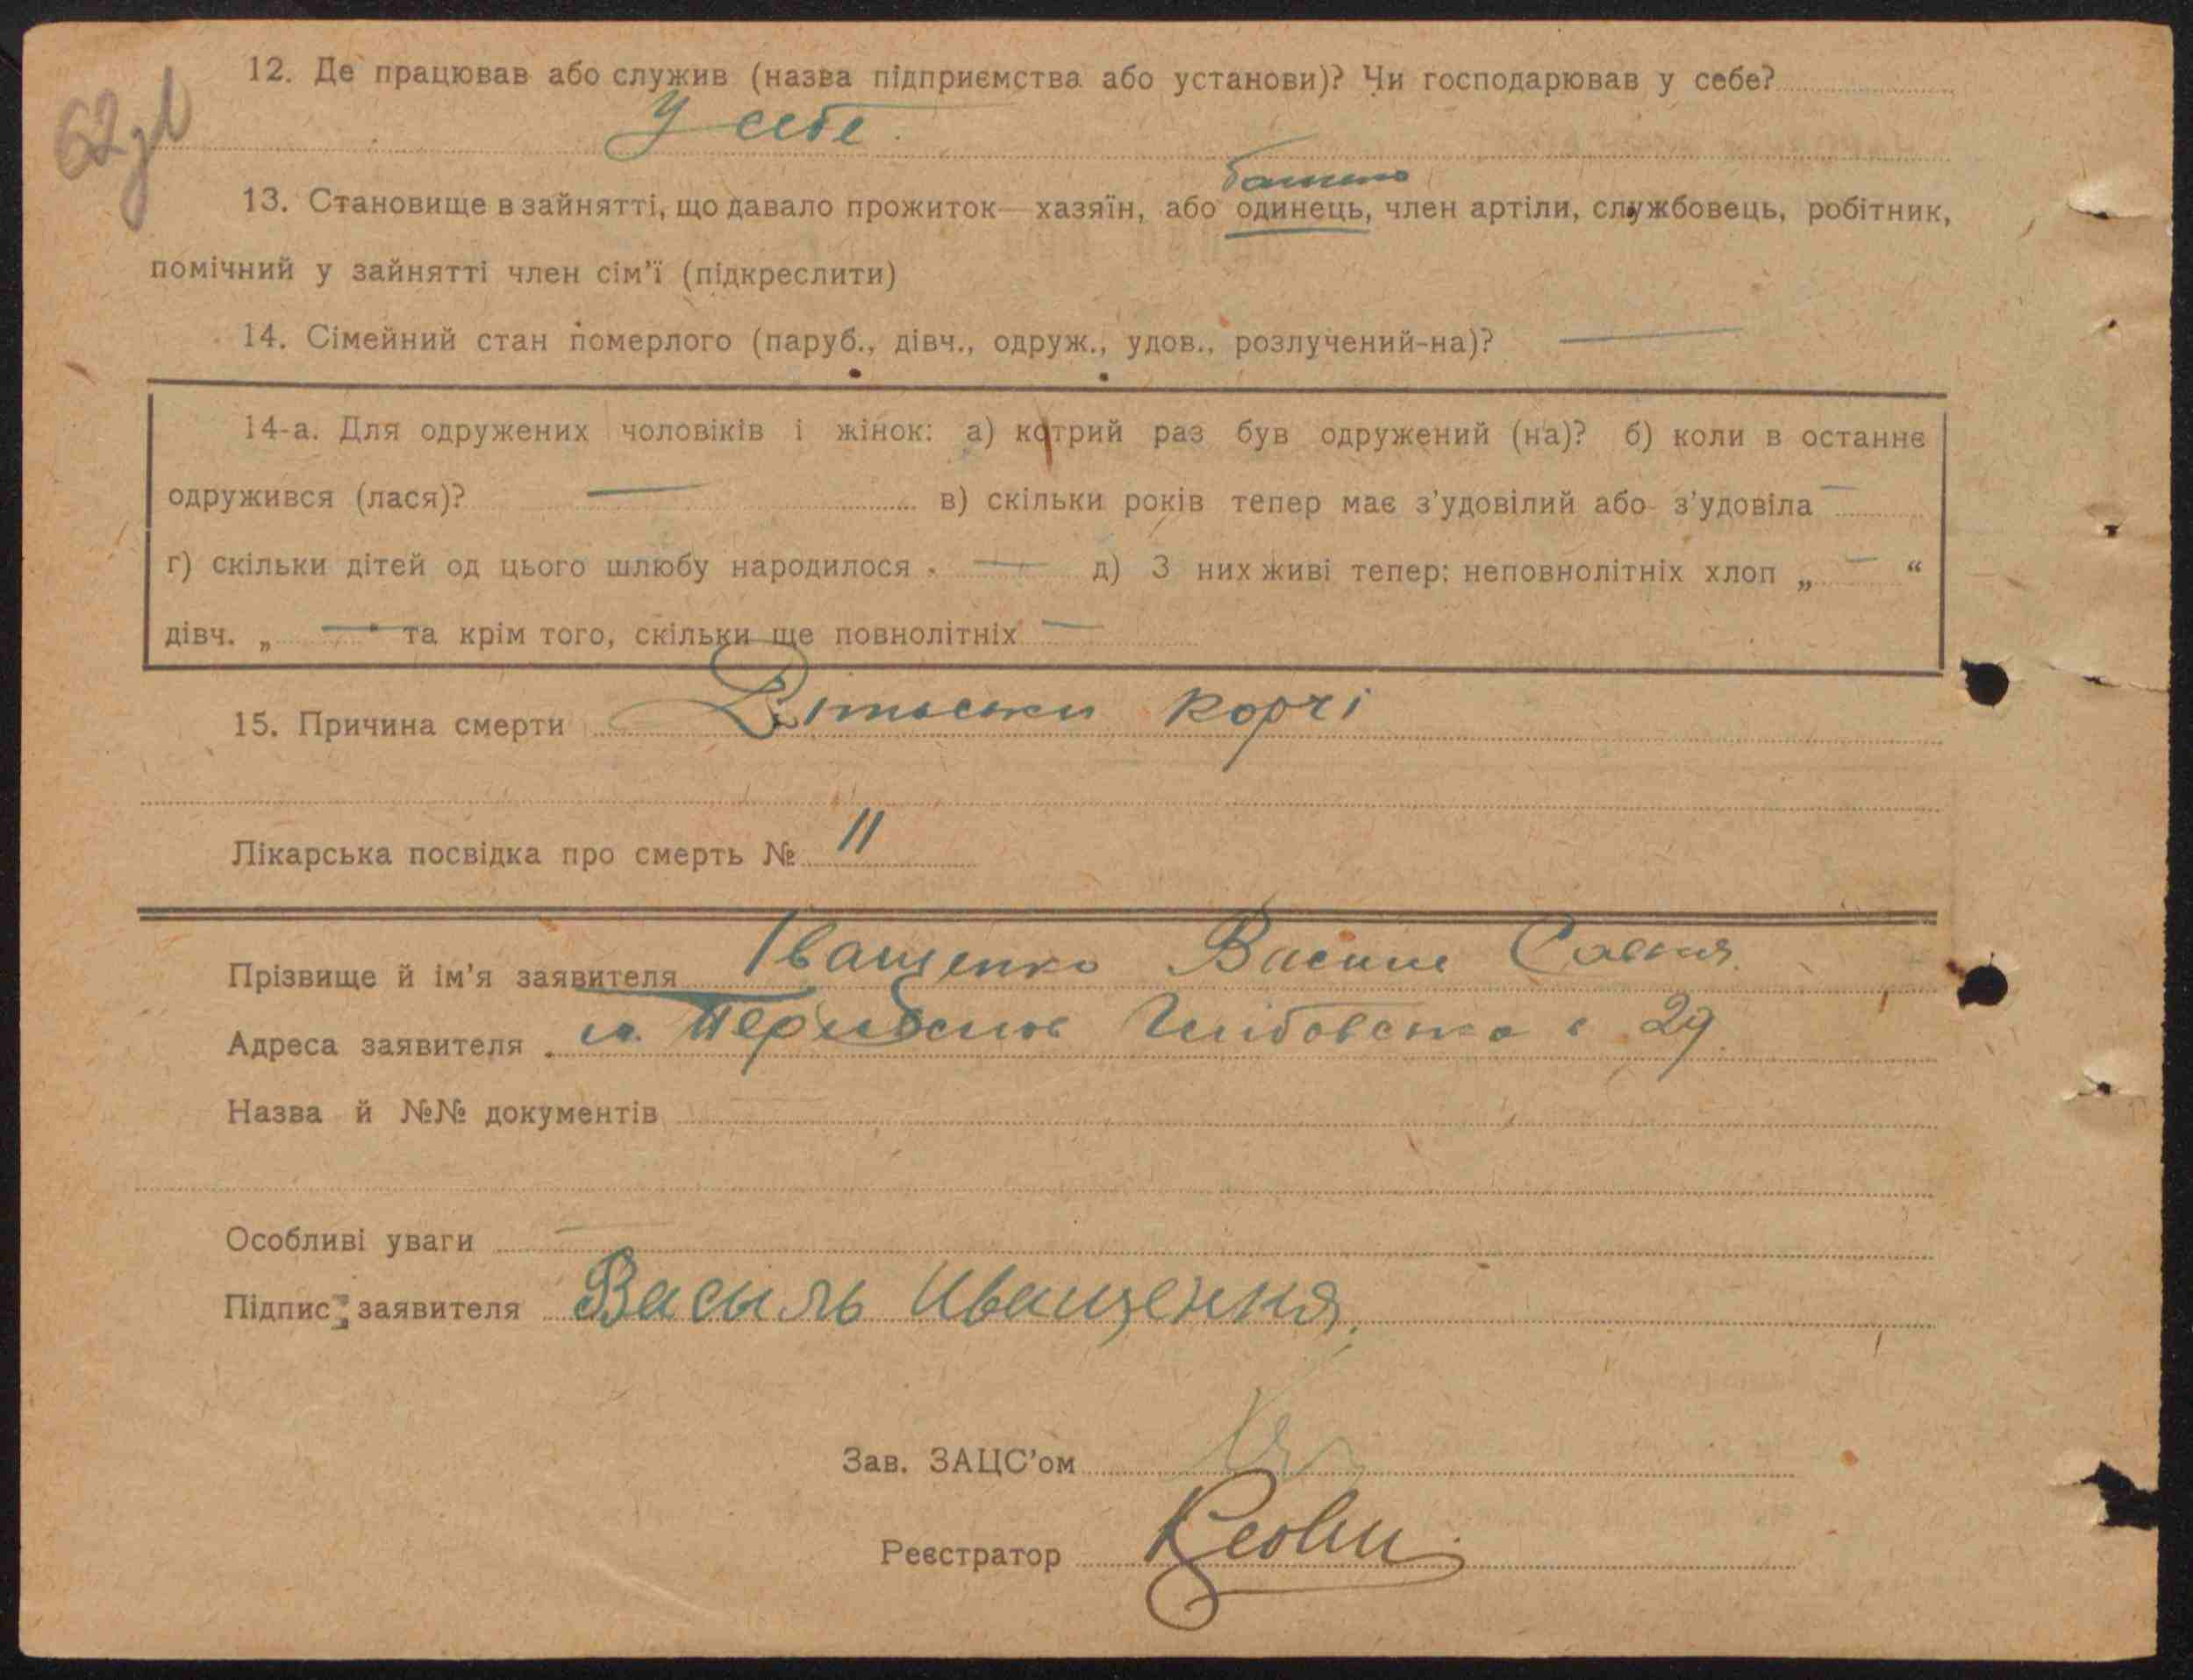 62зв
12. Де працював або служив (назва підприємства або установи)? Чи господарював у себе?
У себе.
батько
13. Становище в зайнятті, що давало прожиток — хазяїн, або одинець, член артіли, службовець, робітник,
помічний у зайнятті член сім'ї (підкреслити)
14. Сімейний стан померлого (паруб., дівч., одруж., удов., розлучений-на)? —
14-а. Для одружених чоловіків і жінок: а) котрий раз був одружений (на)? б) коли в останнє
одружився (лася)? — в) скільки років тепер має з'удовілий або з'удовіла —
г) скільки дітей од цього шлюбу народилося . — д) З них живі тепер: неповнолітніх хлоп „ — “
дівч. „ — та крім того, скільки ще повнолітніх —
15. Причина смерти Дітьськи корчі
Лікарська посвідка про смерть № 11
Прізвище й ім'я заявителя Іващенко Василь
Адреса заявителя . м. 29
Назва й №№ документів
Особливі уваги —
Підпис заявителя Васыль Иващенкя
Зав. ЗАЦС'ом
Реєстратор